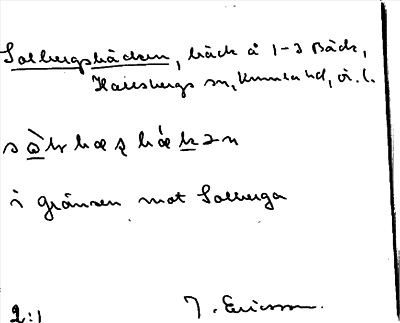 Solbergsbäcken, bäck å 1-3 Bäck,
Hallsbergs sn, Kumla hd, ö. l.
i gränsen mot Solberga
2:1 J. Ericsson.